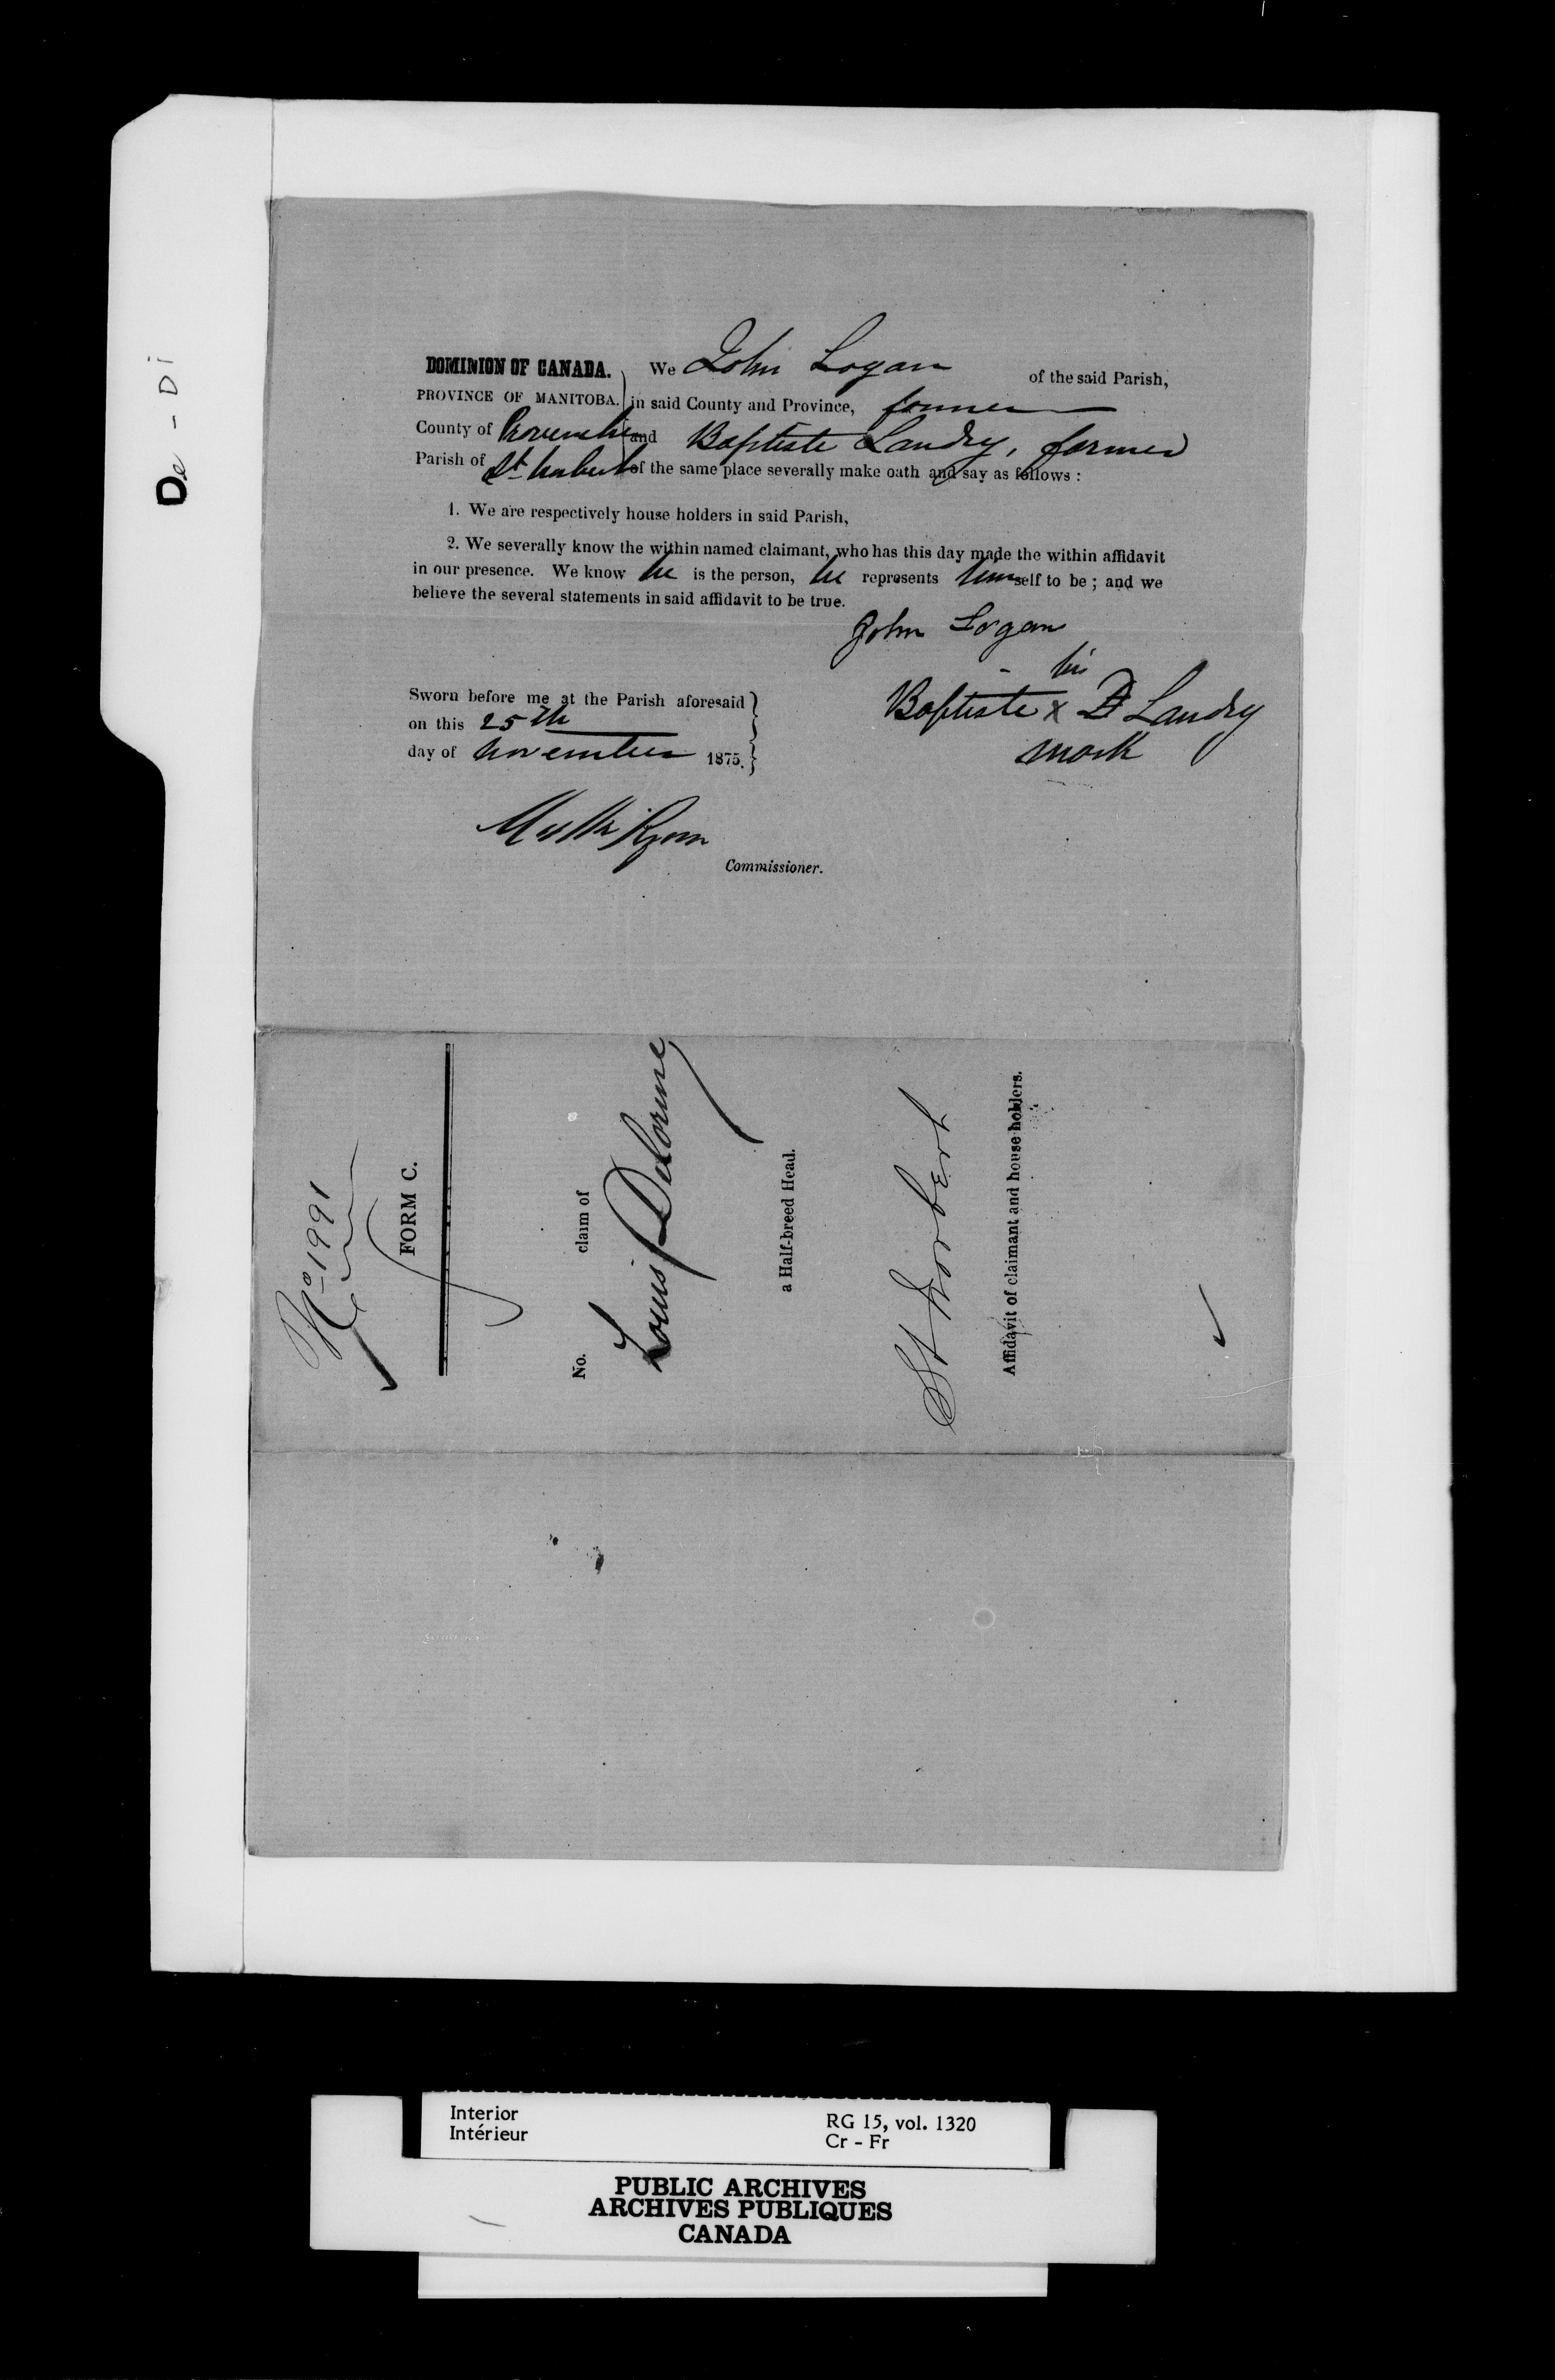 De - Di
DOMINION OF CANADA.
PROVINCE OF MANITOBA.
County of Provencher
Parish of St Norbert
We John Logan of the said Parish,
in said County and Province, farmer
and Baptiste Landry, farmer
of the same place severally make oath and say as follows :
1. We are respectively house holders in said Parish,
2. We severally know the within named claimant, who has this day made the within affidavit
in our presence. We know he is the person, he represents himself to be ; and we
believe the several statements in said affidavit to be true.
John Logan
his
Baptiste x Landry
mark
Sworn before me at the Parish aforesaid
on this 25th
day of November 1875.
Matth Ryan
Commissioner.
No 1991
FORM C.
No. claim of
Louis Delorme
a Half-breed Head.
St Norbert
Affidavit of claimant and house holders.
Interior
Intérieur
RG 15, vol. 1320
Cr - Fr
PUBLIC ARCHIVES
ARCHIVES PUBLIQUES
CANADA